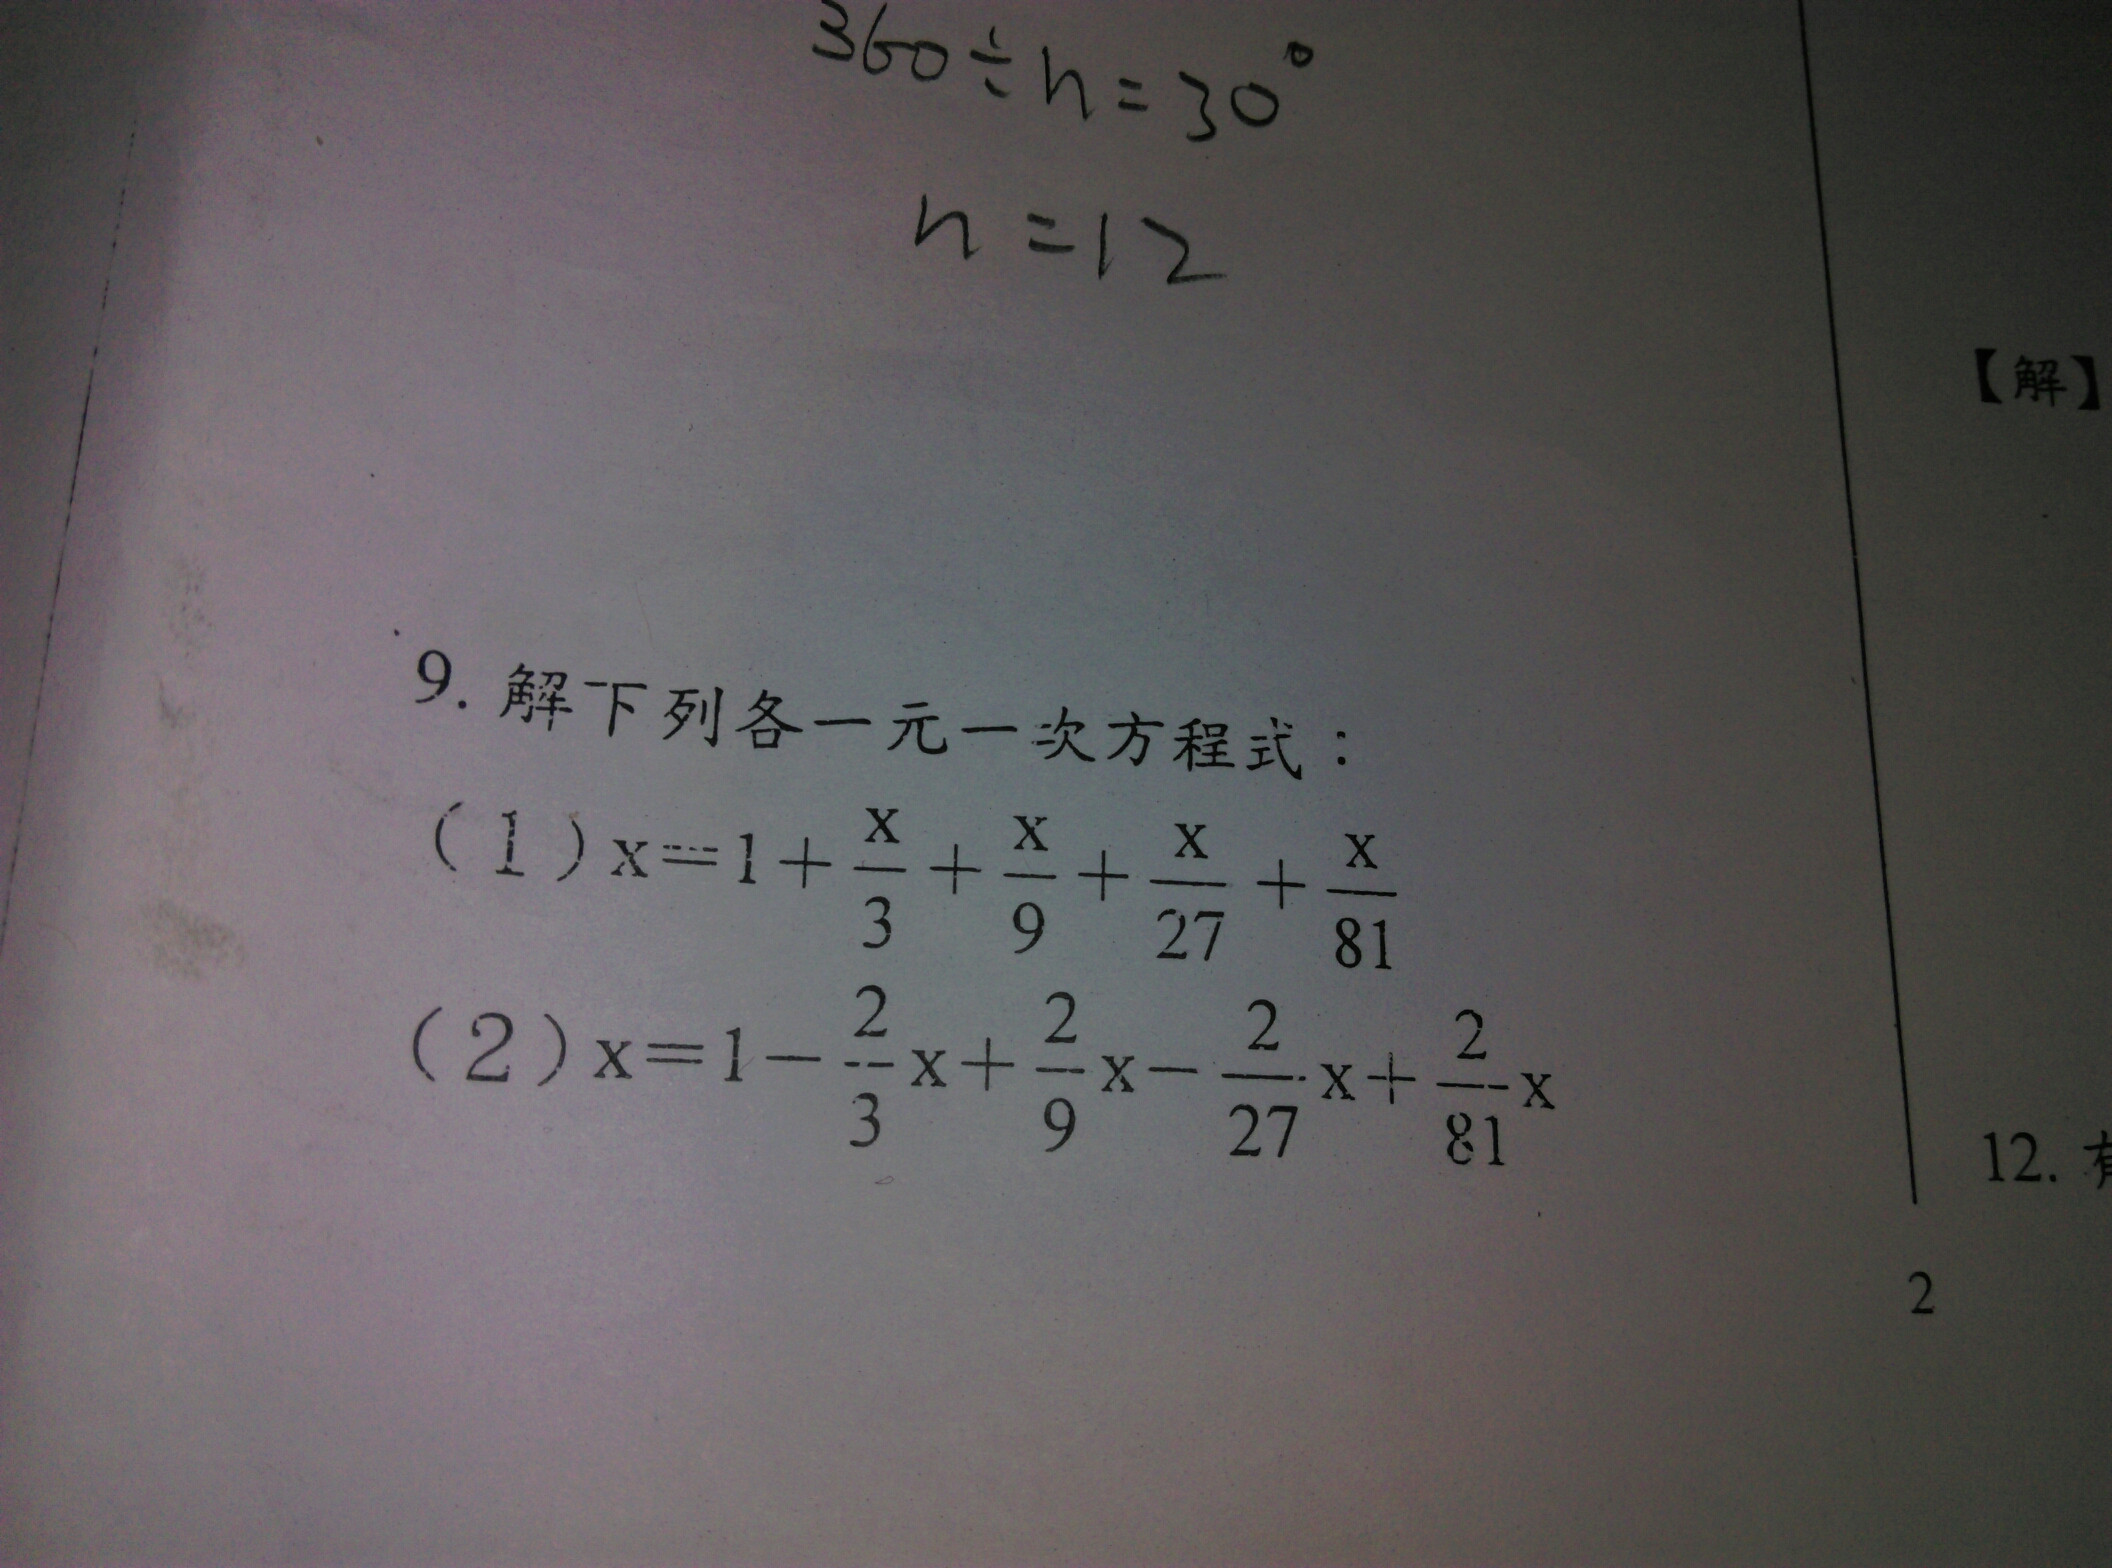 360÷n=30°
n=12
9. 解下列各一元一次方程式：
(1) x=1+x/3+x/9+x/27+x/81
(2) x=1−2/3x+2/9x−2/27x+2/81x
【解】
12.
2